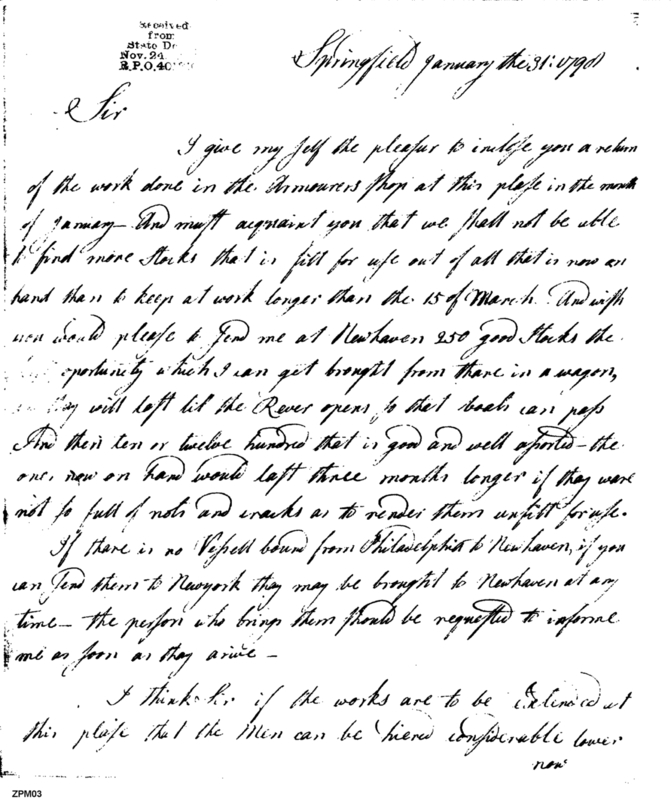 Received
from
State De
Nov. 24
E.P.O. 40
Springfield January the 31: 1798
Sir
I give my self the pleasur to inclose you a return
of the work done in the Armourers shop at this plase in the month
of January— And must acquaint you that we shall not be able
to find more Stocks that is fitt for use out of all that is now on
hand than to keep at work longer than the 15 of March. And wish
you would please to send me at Newhaven 250 good Stocks the
oportunity which I can get brought from thare in a wagon,
thay will last til the River opens so that boats can pass
And then ten or twelve hundred that is good and well asorted— the
ones now on hand would last three months longer if thay ware
not so full of nots and cracks as to render them unfitt for use.
If there is no Vessell bound from Philadelphia to Newhaven, if you
can send them to Newyork thay may be brought to Newhaven at any
time— the person who brings them should be requested to informe
me as soon as thay arive—
I think Sir if the works are to be Extended at
this plase that the Men can be hiered considerable lower
now
ZPM03